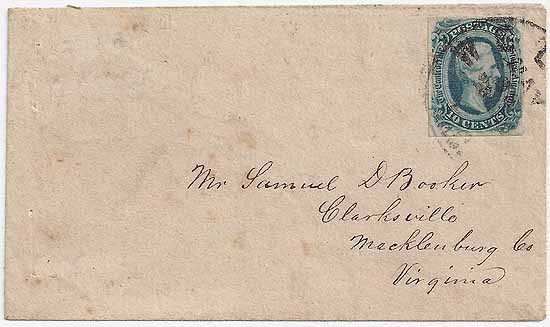 POSTAGE
The Confederate States of America
10 CENTS
Mr Samuel D Booker
Clarksville
Macklenburg Co
Virginia